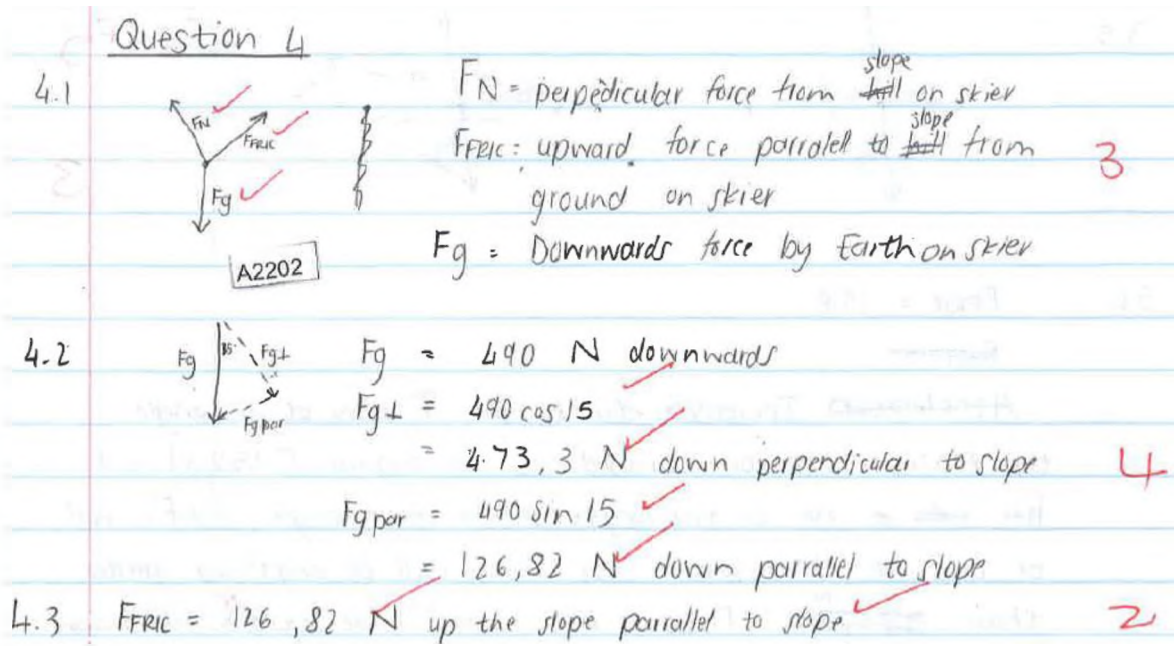 Question 4
4.1
FN
FFRIC
Fg
FN = perpedicular force from slope on skier
FFRIC: upward force parralel to slope from
ground on skier
3
Fg = Downwards force by Earth on skier
A2202
4.2
Fg 15° Fg⊥
Fg par
Fg = 490 N downwards
Fg⊥ = 490 cos 15
= 473,3 N down perpendicular to slope
4
Fg par = 490 sin 15
= 126,82 N down parrallel to slope
4.3 FFRIC = 126,82 N up the slope parrallel to slope
2